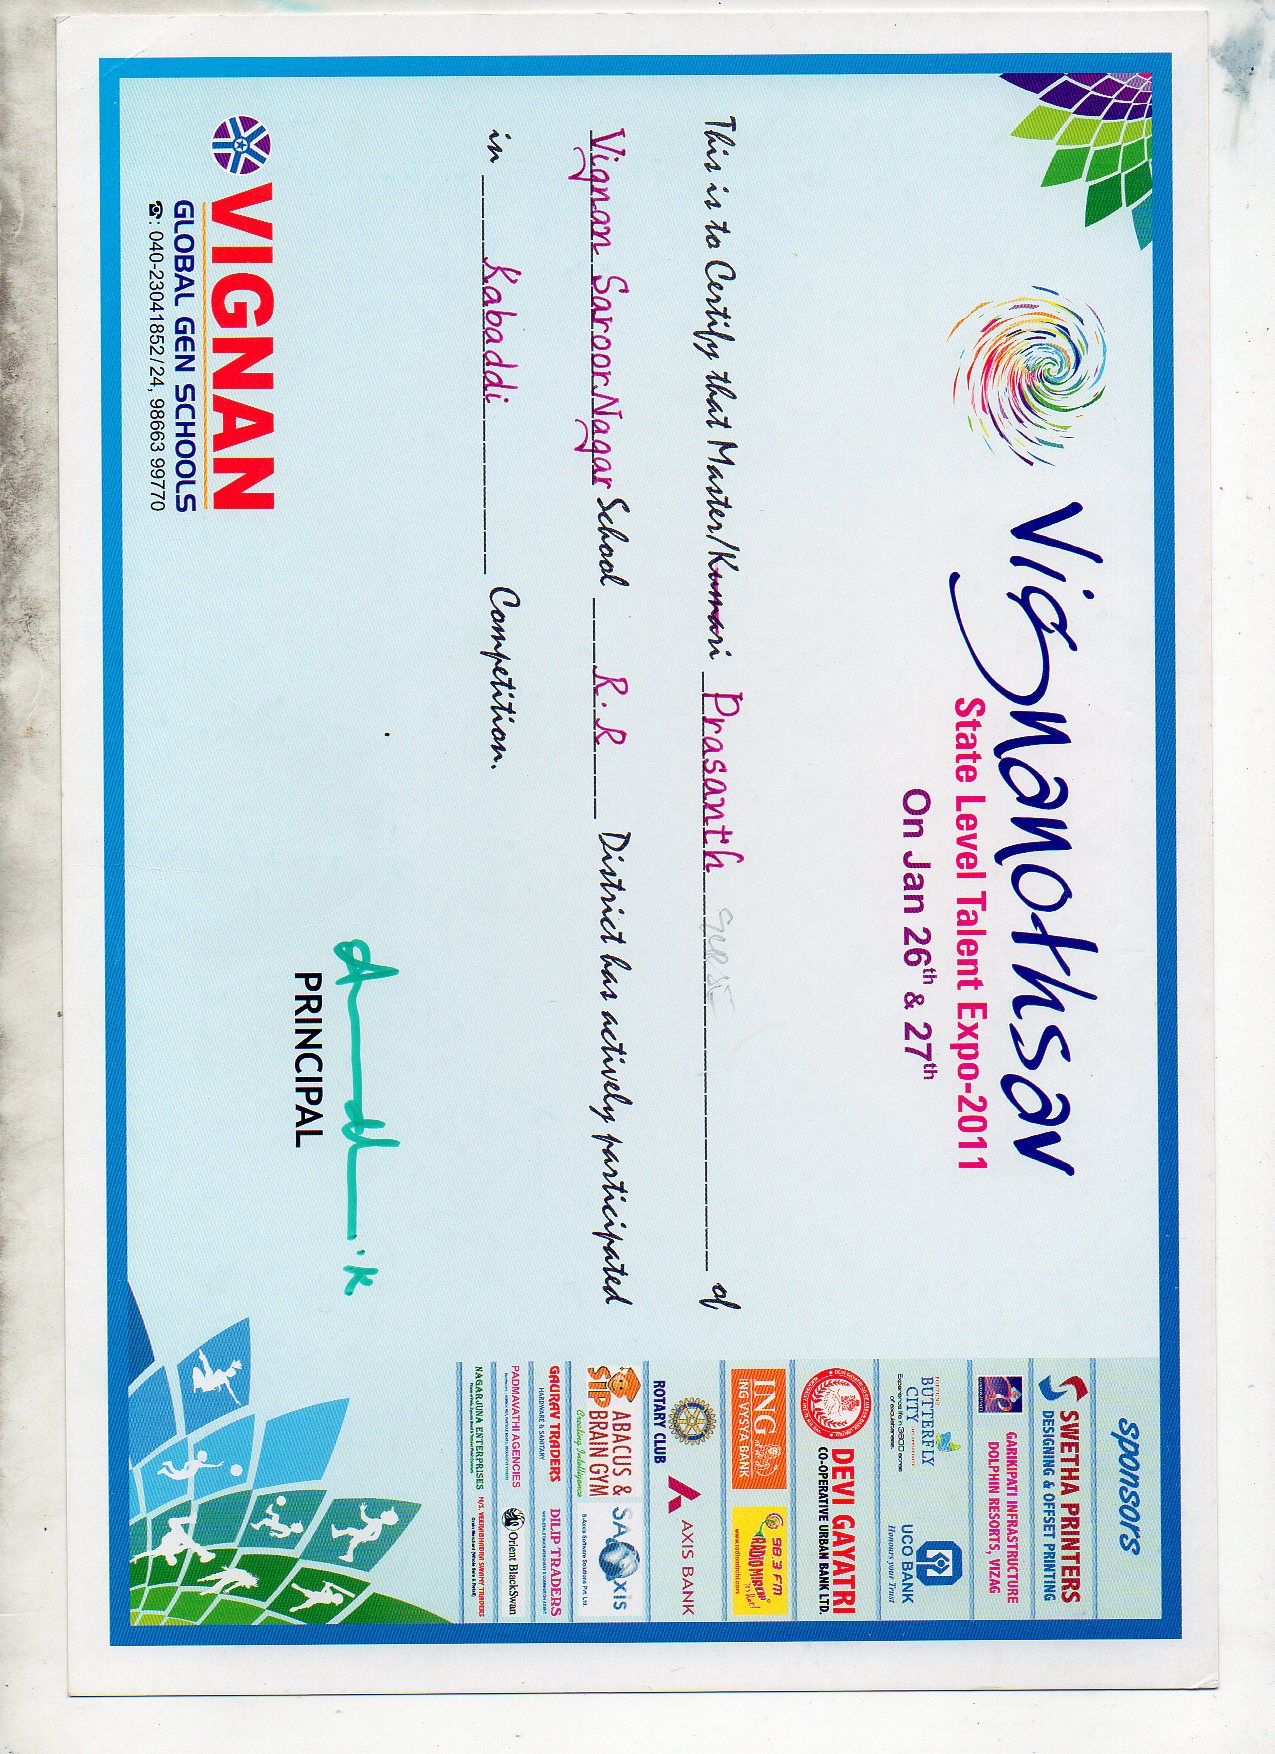 Vignanothsav
State Level Talent Expo-2011
On Jan 26th & 27th
This is to Certify that Master/Kumari Prasanth of
Vignan SaroorNagar School R.R District has actively participated
in Kabaddi Competition.
A
.K
PRINCIPAL
VIGNAN
GLOBAL GEN SCHOOLS
☎: 040-23041852/24, 98663 99770
sponsors
SWETHA PRINTERS
DESIGNING & OFFSET PRINTING
GARIKIPATI INFRASTRUCTURE
DOLPHIN RESORTS, VIZAG
BUTTERFLY
CITY
Experience life in 3600 acres
of exquisiteness.
UCO BANK
Honours your Trust
DEVI GAYATRI
CO-OPERATIVE URBAN BANK LTD.
ING
ING VYSYA BANK
98.3 FM
RADIO MIRCHI
it's hot!
www.radiomirchi.com
ROTARY CLUB
AXIS BANK
SIP
ABACUS &
BRAIN GYM
Creating Intelligence
SAxis
S-Axxis Software Solutions Pvt. Ltd.
GAURAV TRADERS
HARDWARE & SANITARY
DILIP TRADERS
PADMAVATHI AGENCIES
Orient BlackSwan
NAGARJUNA ENTERPRISES
M/S. VEERABHADRA SWAMY TRADERS
Grain Merchant (Whole Sale & Retail)